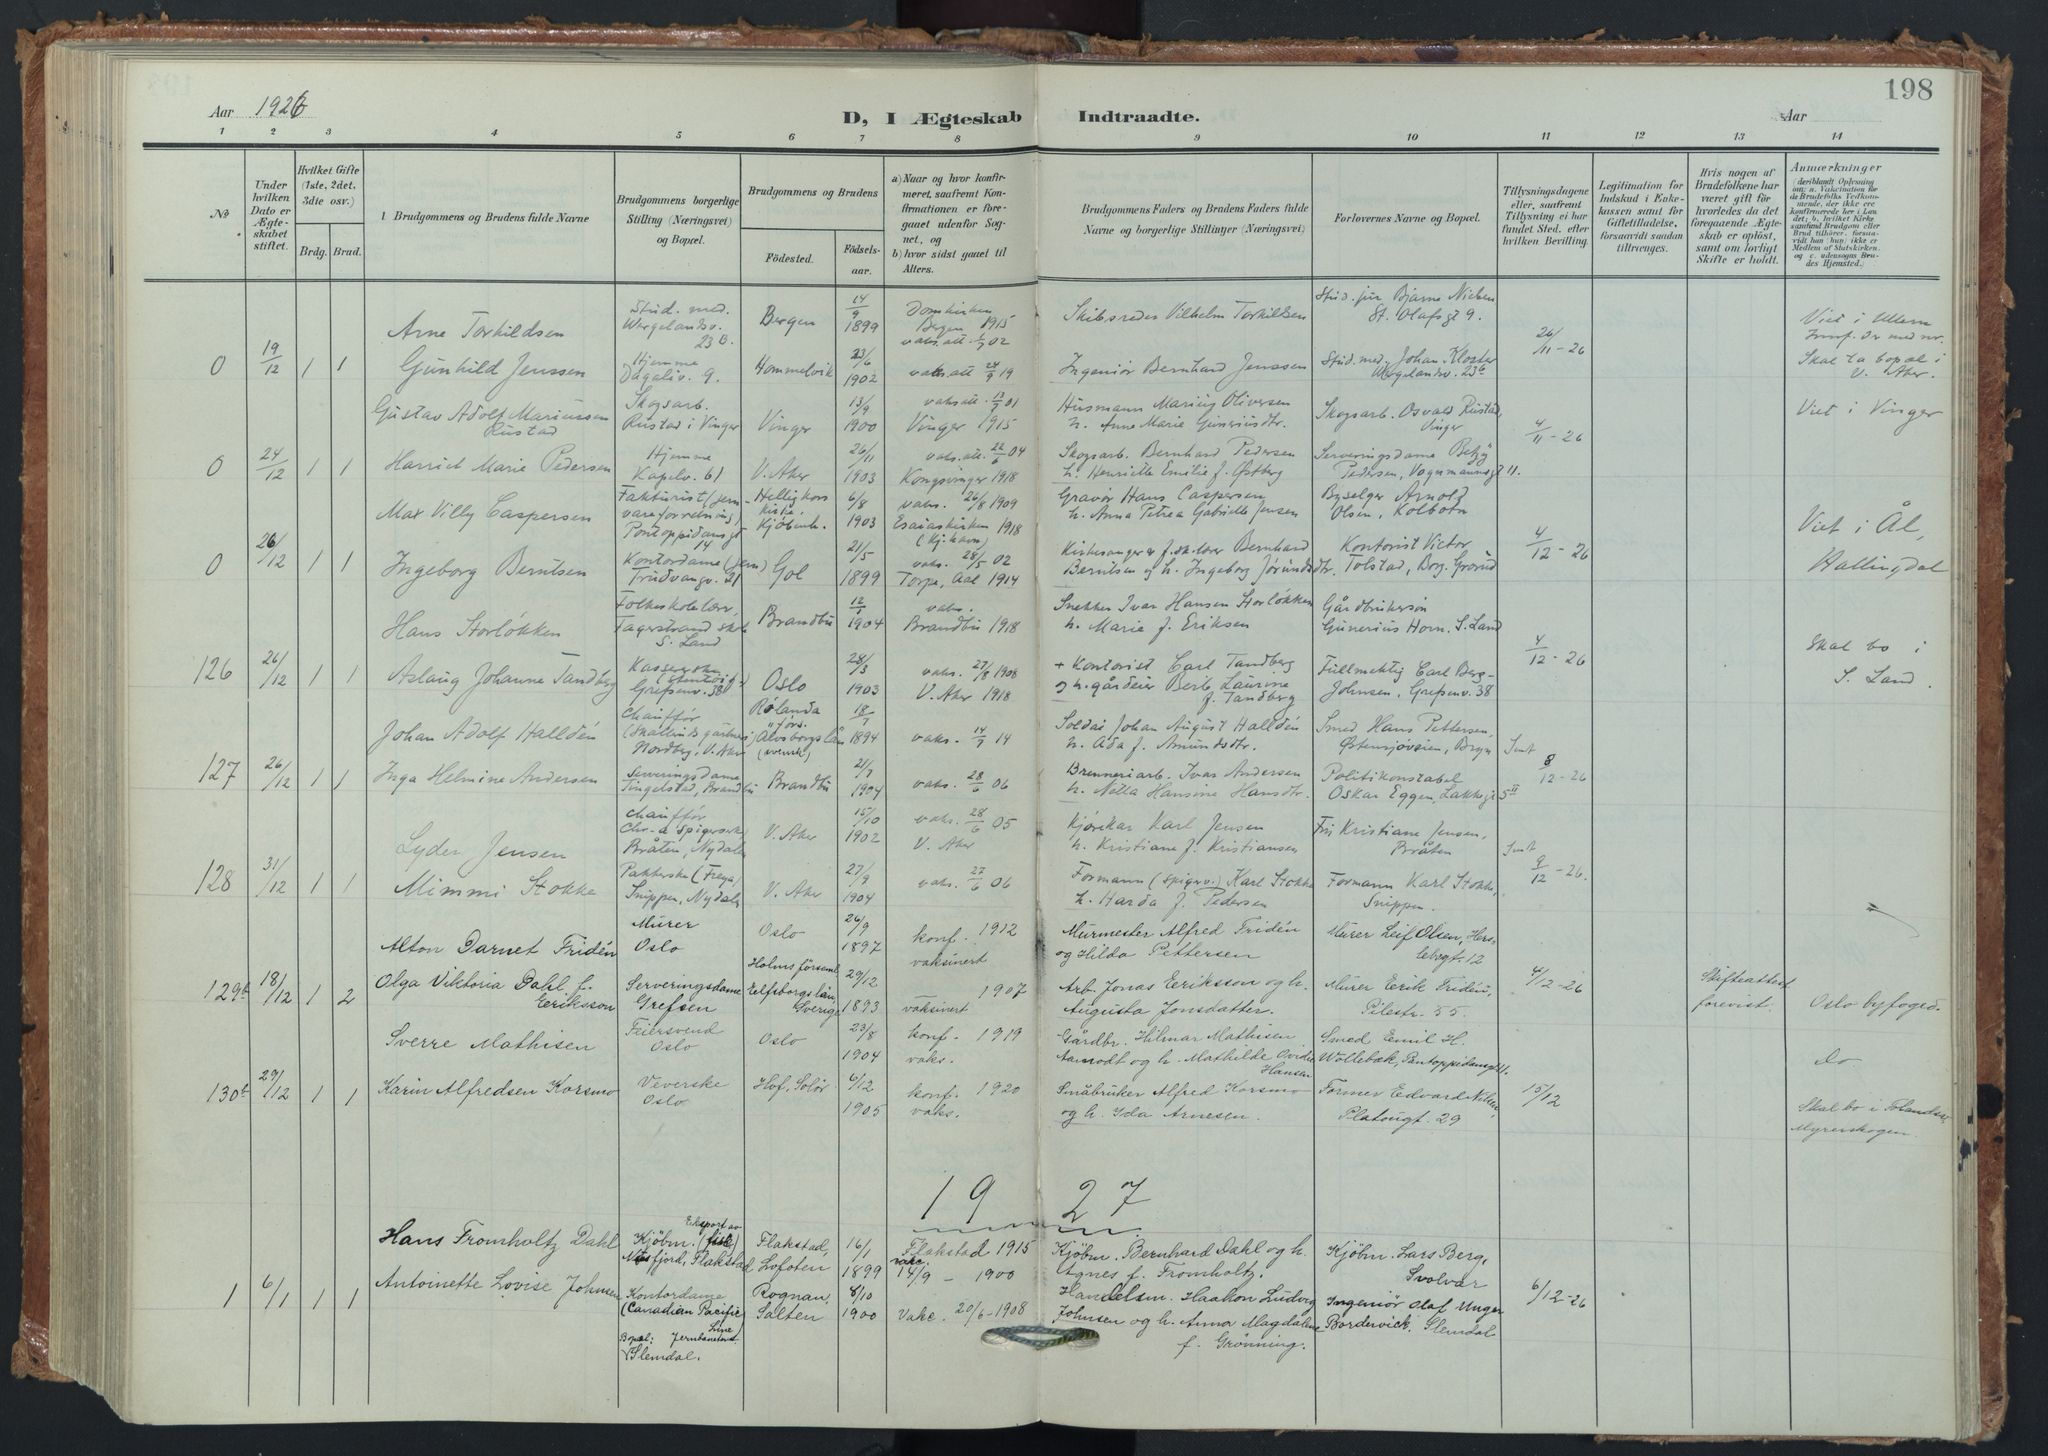 198
Aar 1926
D, I Ægteskab Indtraadte.
Aar
1 2 3 4 5 6 7 8 9 10 11 12 13 14
No
Under hvilken Dato er Ægteskabet stiftet.
Hvilket Gifte (1ste, 2det, 3die osv.)
Brdg. Brud.
Brudgommens og Brudens fulde Navne
Brudgommens borgerlige Stilling (Næringsvei) og Bopæl.
Brudgommens og Brudens
Fødested.
Fødselsaar.
a) Naar og hvor konfirmeret, saafremt Konfirmationen er foregaaet udenfor Sognet, og
b) hvor sidst gaaet til Alters.
Brudgommens Faders og Brudens Faders fulde Navne og borgerlige Stillinger (Næringsvei)
Forlovernes Navne og Bopæl.
Tillysningsdagene eller, saafremt Tillysning ei har fundet Sted, efter hvilken Bevilling.
Legitimation for Indskud i Enkekassen samt for Giftetilladelse, forsaavidt saadan tiltrænges.
Hvis nogen af Brudefolkene har været gift før hvorledes da det foregaaende Ægteskab er opløst, samt om lovligt Skifte er holdt.
Anmærkninger
Arne Torkildsen Stud. med. Wergelandsv. 23 B. Bergen 14/9 1899 Domkirken Bergen 1915 vaks. att. 02 Skibsreder Vilhelm Torkildsen Stud. jur Bjarne Nielsen St. Olafsgt 9.
0 19/12 1 1 Gunhild Jenssen Hjemme Dagaliv. 9. Hommelvik 23/6 1902 vaks att 24/9 19 Ingeniør Bernhard Jenssen Stud. med. Johan Kloster Wergelandsv. 23b 26/11-26 Viet i Ullern Skal ta bopæl i V. Aker.
Gustav Adolf Mariussen Rustad Skogsarb. Rustad i Vinger Vinger 13/9 1900 vaks att. 01 Vinger 1915 Husmann Marius Oliversen h. Anne Marie Guneriusdtr. Skogsarb. Osvald Rustad, Vinger Viet i Vinger
0 24/12 1 1 Harriet Marie Pedersen Hjemme Kapelv. 61 V. Aker 26/11 1903 vaks. att. 22/6 04 Kongsvinger 1918 Skogsarb. Bernhard Pedersen h. Henriette Emilie f. Østberg Serveringsdame Betzy Pedersen, Vognmannsgt 11. 4/11-26
Max Villy Caspersen Fakturist (jernvareforretning) Pontoppidansgt 14 Helligkors kirke, Kjøbenh. 6/8 1903 vaks. 26/8 1909 Esaiaskirken 1918 (Kj.havn) Gravør Hans Caspersen h. Anna Petrea Gabrielle Jensen Byselger Arnolz Olsen, Kolbotn
0 26/12 1 1 Ingeborg Berntsen Kontordame (jern) Trudvangv. 21 Gol 21/5 1899 vaks. 28/5 02 Torpe, Aal 1914 Kirkesanger & f. sk. lærer Bernhard Berntsen og h. Ingeborg Jørundsdtr. Kontorist Victor Tolstad, Borg. Grorud 4/12-26 Viet i Ål, Hallingdal
Hans Storløkken Folkeskolelærer, Fagerstrand skole S. Land Brandbu 12/1 1904 vaks. Brandbu 1918 Snekker Ivar Hansen Storløkken h. Marie f. Eriksen Gårdbrukersøn Gunerius Horn. S. Land
126 26/12 1 1 Aslaug Johanne Tandberg Grefsenv. 38 Oslo 28/3 1903 vaks. 27/8 1908 V. Aker 1918 + Kontorist Carl Tandberg og h. gårdeier Laurine f. Tandberg Fullmektig Carl Berg-Johnsen, Grefsenv. 38 4/12-26 Skal bo i S. Land
Johan Adolf Halldén Chauffør Nordberg, V. Aker Rolanda förs. Älvsborgs län (svensk) 18/7 1894 vaks. 14/9 14 Soldat Johan August Halldén h. Ada f. Amundsdtr. Smed Hans Pettersen, Østensjøveien, Bryn
127 26/12 1 1 Inga Helmine Andersen Serveringsdame Tingelstad, Brandbu Brandbu 21/7 1904 vaks. 28/6 06 Brenneriarb. Ivar Andersen h. Netta Hansine Hansdtr. Politikonstabel Oskar Eggen, Lakkegt 5 II 8/12-26
Lyder Jensen Chauffør Chr-a Spigerverk Bråten, Nydalen V. Aker 15/10 1902 vaks. 28/6 05 V. Aker Kjørekar Karl Jensen h. Kristiane f. Kristiansen Fru Kristiane Jensen, Bråten
128 31/12 1 1 Mimmi Stokke Pakkerske (Freya) Snippen, Nydalen V. Aker 27/9 1904 vaks. 27/6 06 Formann (spigerv.) Karl Stokke h. Harda f. Pedersen Formann Karl Stokke, Snippen. 9/12-26.
Alton Darnet Fridén Murer Oslo Oslo 26/9 1897 konf. 1912 vaksinert Murmester Alfred Fridén og Hilda Pettersen Murer Leif Olsen, Herslebsgt. 12
129b 18/12 1 2 Olga Viktoria Dahl f. Eriksson Serveringsdame Grefsen Holms församl. Elfsborgs län, Sverige 29/12 1893 1907 vaksinert Arb. Jonas Eriksson og h. Augusta Jonsdatter. Murer Erik Fridén, Pilestr. 55. 4/12-26 Skifteattest forevist. Oslo byfoged.
Sverre Mathisen Feiersvend Oslo Oslo 23/8 1904 konf. 1919 vaks. Gårdbr. Hilmar Mathisen Aamodt og h. Mathilde Ovidia Hansen Smed Emil H. Wollebæk, Pontoppidansgt 11. Do.
130b 29/12 1 1 Karin Alfredsen Korsmo Veverske Oslo Hof, Solør 6/12 1905 konf. 1920 vaks. Småbruker Alfred Korsmo og h. Ida Arnesen. Former Edvard Nilsen, Platougt. 29 15/12 Skal bo i Myrerskogen.
1927
Hans Fromholtz Dahl Kjøbm. (Eksport av fisk) Nusfjord, Flakstad Flakstad, Lofoten 16/1 1899 Flakstad 1915 vakc. 14/9 - 1900 Kjøbm. Bernhard Dahl og h. Agnes f. Fromholtz. Kjøbm. Lars Berg, Svolvær
1 6/1 1 1 Antoinette Lovise Johnsen Kontordame (Canadian Pacific Line) Bopæl: Jernbanetorvet Slemdal. Rognan, Salten 8/10 1900 Vakc. 20/6-1908 Handelsm. Haakon Ludvig Johnsen og h. Anna Magdalene f. Grönning. Ingeniør Olaf Unger Bordewick. Slemdal 6/12-26